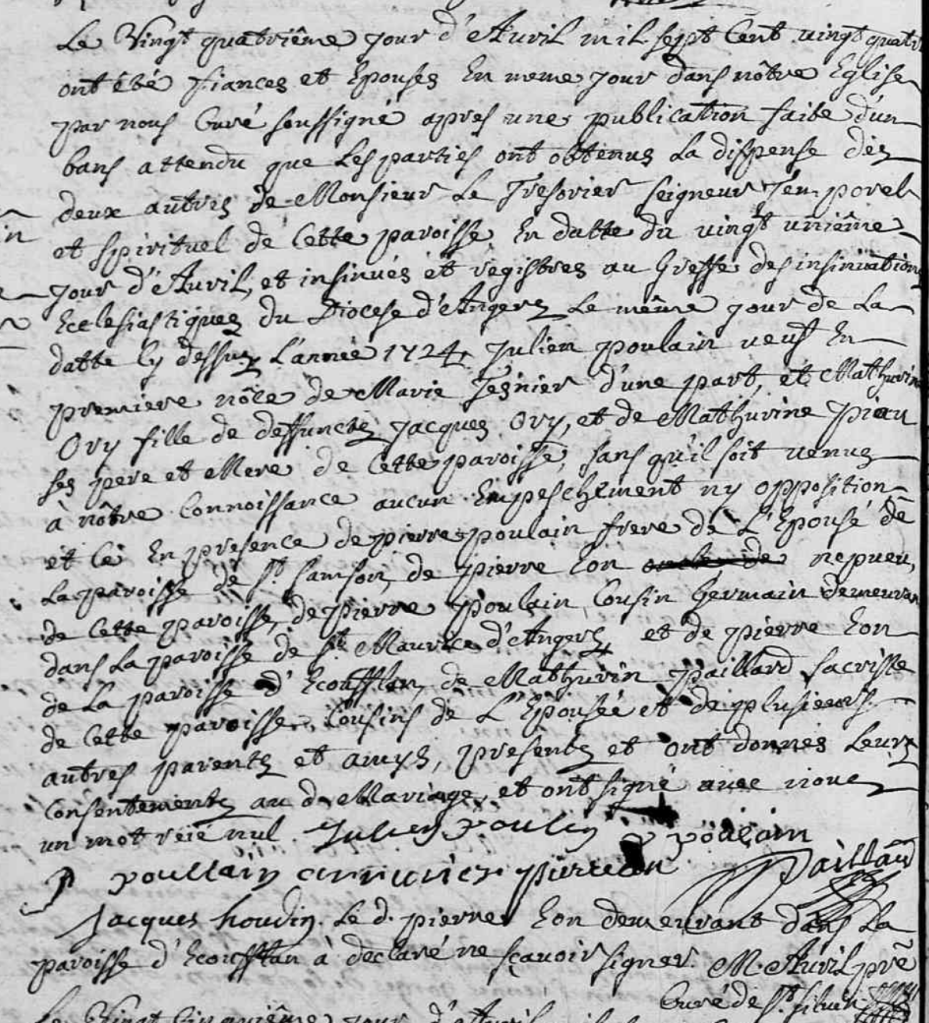 Le Vingt quatriême jour d'Avril mil sept Cent vingt quatr
ont été fiances et Epouses En meme jour dans nôtre Eglise
par nous Curé soussigné apres une publication faite d'un
bans attendu que Les parties ont obtenus La dispense dez
deux autres de Monsieur Le Tresorier seigneur Temporel
et spirituel de Cette paroisse En datte du vingt uniême
jour d'Avril, et insinués et registres au Greffe des insinuations
Ecclesiastiques du Diocese d'Angers Le même jour de La
datte Cy dessus L'année 1724, Julien poulain veuf En
premiere nôce de Marie Tesnier d'une part, et Mathurine
Ory fille de deffunctz Jacques Ory, et de Mathurine piau
ses pere et Mere de Cette paroisse, sans qu'il soit venus
à nôtre Connoissance aucun Empeschement ny opposition
et Ce En presence de pierre poulain frere de L'Epousé de
La paroisse de St. Samson, de pierre hon nepueu,
de Cette paroisse, de pierre poulain, Cousin Germain demeuran
dans La paroisse de St Maurice d'Angers et de pierre hon
de La paroisse d'Ecoufflan, de Mathurin paillard sacriste
de Cette paroisse, Cousins de L'Epousée et de plusieurs
autres parents et amys, presents et ont donnes Leurs
Consentements au d. Mariage, et ont signé avec nous
un mot reié nul. Julien poulin p poulain
P poullain pierre hon Paillard
Jacques houdin. Le d. pierre hon demeurant dans La
paroisse d'Ecoufflan à declaré ne sçavoir signer. M. Avril prê
Curé de St. silvin
Le Vingt Cinquiême jour d'Avril